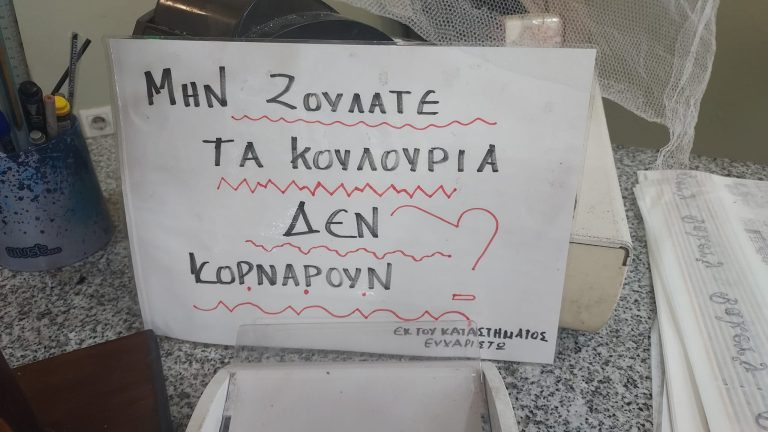 ΜΗΝ ΖΟΥΛΑΤΕ
ΤΑ ΚΟΥΛΟΥΡΙΑ
ΔΕΝ
ΚΟΡΝΑΡΟΥΝ
ΕΚ ΤΟΥ ΚΑΤΑΣΤΗΜΑΤΟΣ
ΕΥΧΑΡΙΣΤΩ